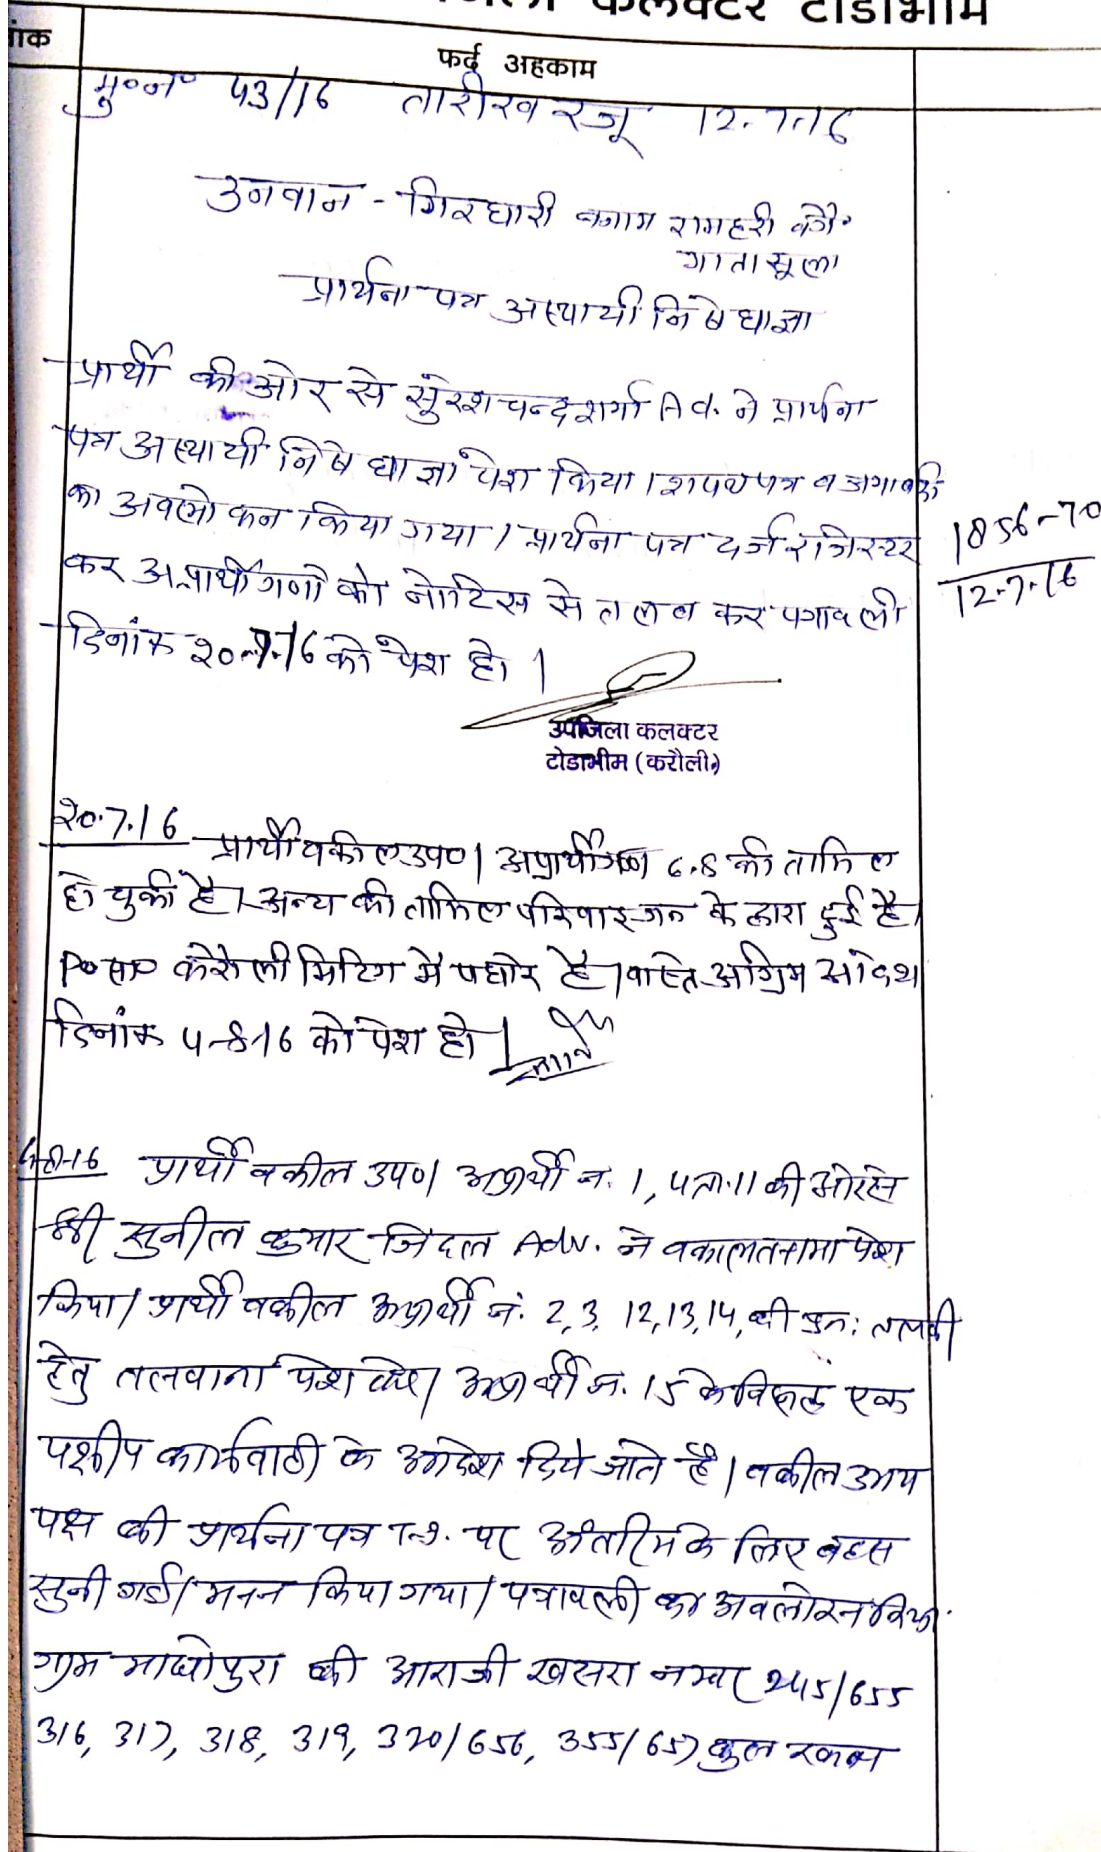 कलक्टर टोडाभीम
फर्द अहकाम
मु०नं० 43/16 तारीख रजू 12.7.16
उनवान - गिरधारी बनाम रामहरी वगै०
प्रार्थना पत्र अस्थायी निषेधाज्ञा
प्रार्थी की ओर से सुरेशचन्द शर्मा Ad. ने प्रार्थना
पत्र अस्थायी निषेधाज्ञा पेश किया। शपथ पत्र व
का अवलोकन किया गया। प्रार्थना पत्र दर्ज रजिस्टर
1856-70
12.7.16
कर अप्रार्थीगणों को नोटिस से तलब कर पत्रावली
दिनांक 20.7.16 को पेश हो।
उपजिला कलक्टर
टोडाभीम (करौली)
20.7.16
प्रार्थी वकील उप०। अप्रार्थीगण 6.8 की तामिल
हो चुकी है। अन्य की तामिल परिवारजन के द्वारा हुई है।
करौली मिटिंग में पधारे है। वास्ते अग्रिम आदेश
दिनांक 4-8-16 को पेश हो।
4-8-16 प्रार्थी वकील उप०। अप्रार्थी नं. 1, 4 ता. 11 की ओर से
श्री सुनील कुमार जिंदल Adv. ने वकालतनामा पेश
किया। प्रार्थी वकील अप्रार्थी नं. 2, 3, 12, 13, 14, की पुन: तलबी
हेतु तलवाना पेश करे। अप्रार्थी नं. 15 के विरुद्ध एक
पक्षीय कार्यवाही के आदेश दिये जाते है। वकील उभय
पक्ष की प्रार्थना पत्र T.I. पर अंतरिम के लिए बहस
सुनी गई। मनन किया गया। पत्रावली का अवलोकन किया
ग्राम माधोपुरा की आराजी खसरा नम्बर 245/655
316, 317, 318, 319, 320/656, 355/657 कुल रकबा